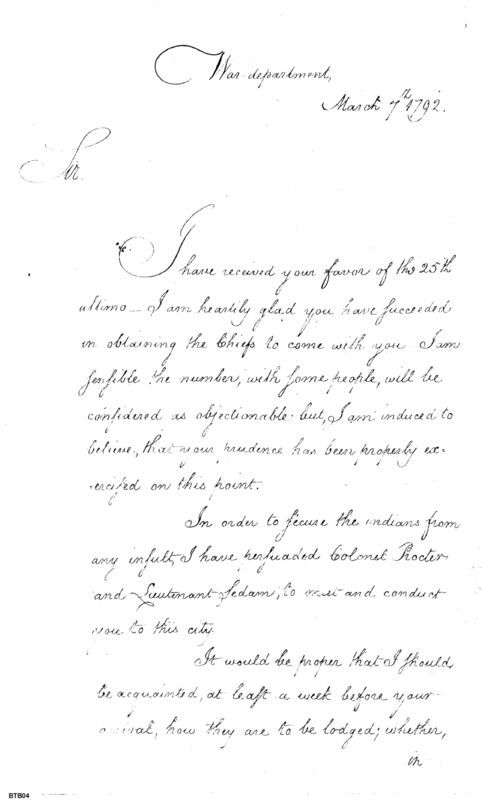 War-department,
March 7th 1792.
Sir.
I have received your favor of the 25th
ultimo — I am heartily glad you have succeeded
in obtaining the Chiefs to come with you I am
sensible the number, with some people, will be
considered as objectionable: but, I am induced to
believe, that your prudence has been properly ex-
-ercised on this point.
In order to secure the indians from
any insult, I have persuaded Colonel Procter
and Lieutenant Sedam, to meet and conduct
you to this city.
It would be proper that I should
be acquainted, at least a week before your
arrival, how they are to be lodged; whether,
in
BTB04